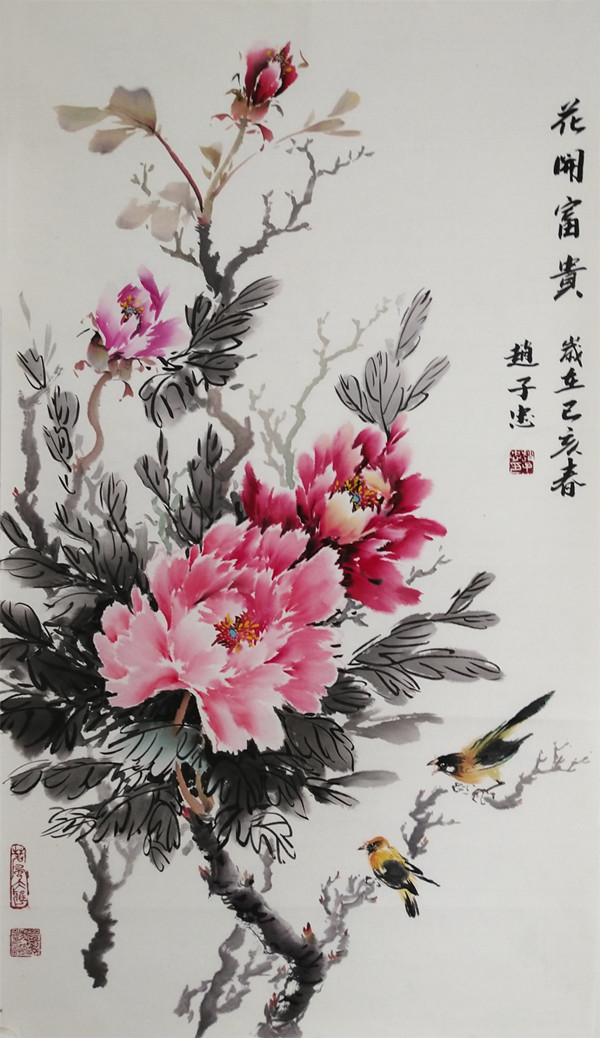 花開富貴
歲在己亥春
趙子忠